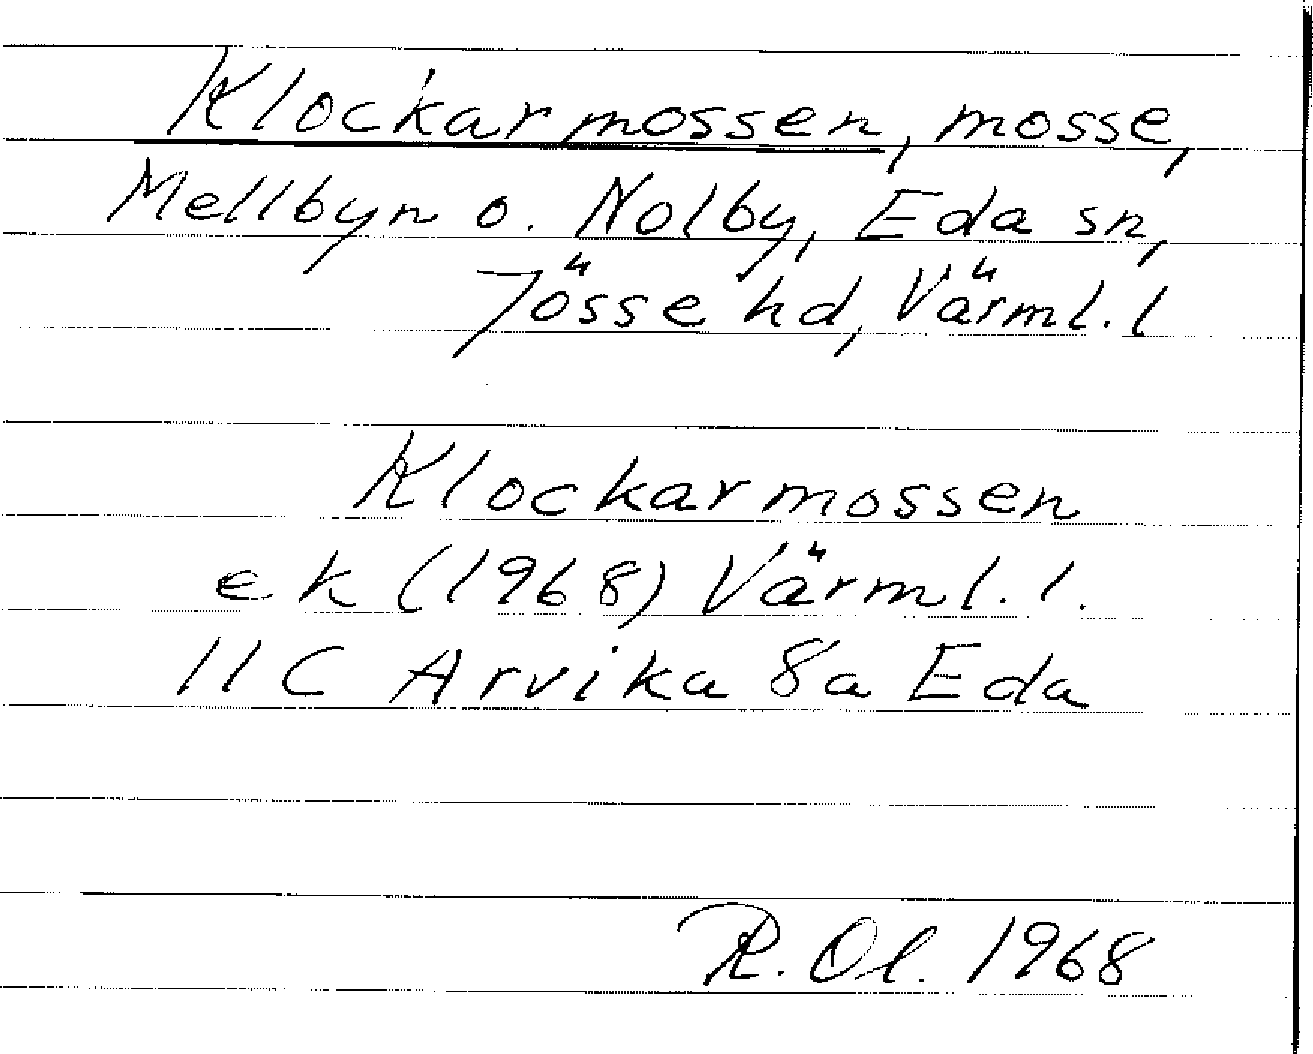 Klockarmossen, mosse,
Mellbyn o. Nolby, Eda sn,
Jösse hd, Värml. l
Klockarmossen
ek (1968) Värml. l.
11C Arvika 8a Eda
R. Ol. 1968